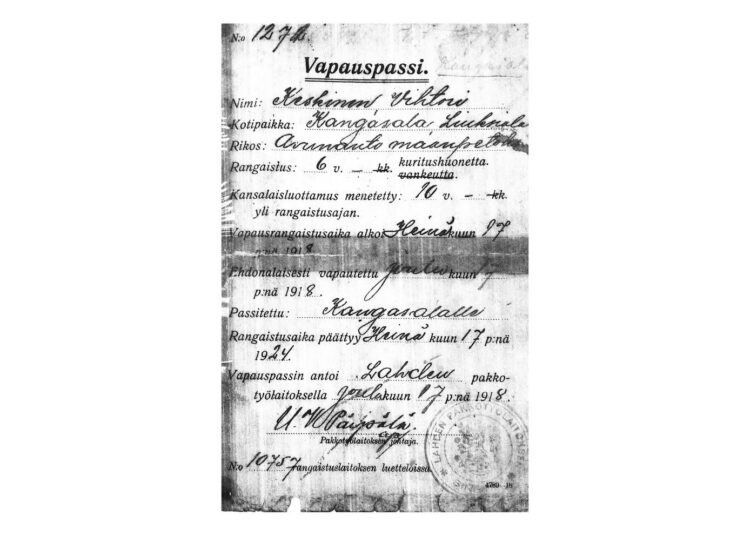 N:o 1274.
Vapauspassi.
Nimi: Keskinen Vihtori
Kotipaikka: Kangasala, Liuksiala
Rikos: Avunanto maanpetoks
Rangaistus: 6 v. – kk. kuritushuonetta.
vankeutta.
Kansalaisluottamus menetetty: 10 v. – kk.
yli rangaistusajan.
Vapausrangaistusaika alkoi Heinäkuun 17
p:nä 1918
Ehdonalaisesti vapautettu joulukuun 17
p:nä 1918.
Passitettu: Kangasalalle
Rangaistusaika päättyy Heinä kuun 17 p:nä
1924.
Vapauspassin antoi Lahden pakko-
työlaitoksella joulukuun 17 p:nä 1918.
Pakkotyölaitoksen johtaja.
N:o 10757 rangaistuslaitoksen luetteloissa.
4789 18